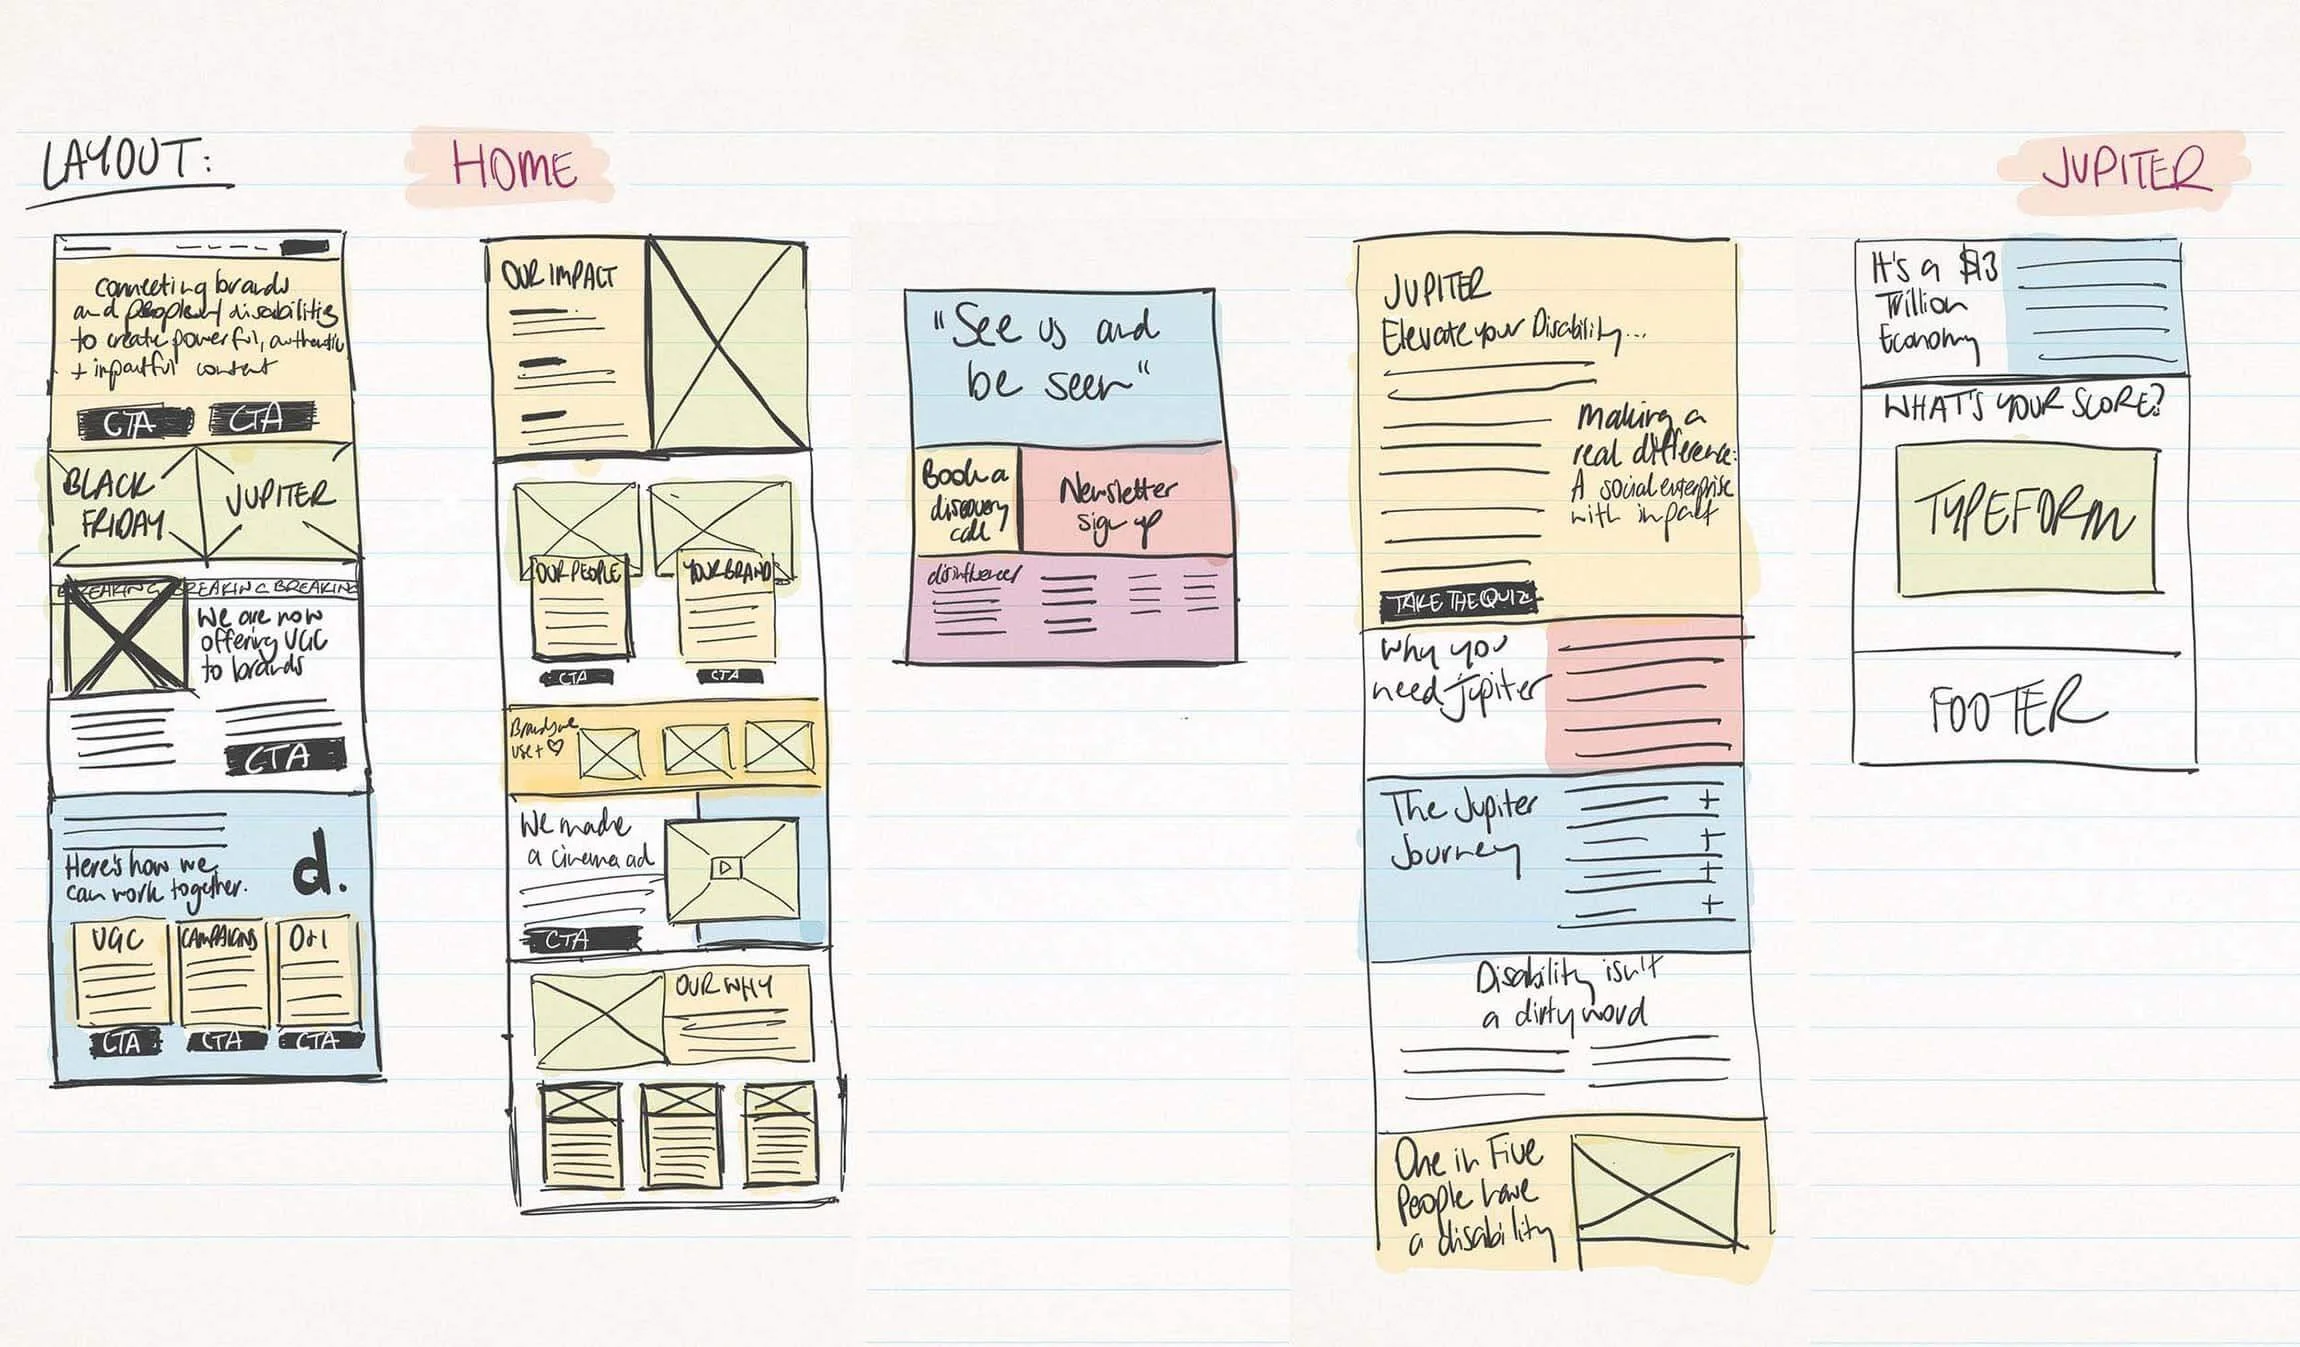 LAYOUT:
HOME
JUPITER
connecting brands
and people w/ disabilities
to create powerful, authentic
+ impactful content
CTA
CTA
BLACK
FRIDAY
JUPITER
BREAKING BREAKING BREAKING
We are now
offering UGC
to brands
CTA
Here's how we
can work together.
d.
UGC
CAMPAIGNS
CTA
CTA
CTA
OUR IMPACT
OUR PEOPLE
YOUR BRAND
CTA
CTA
use + ♡
We made
a cinema ad
CTA
OUR WHY
"See us and
be seen"
Book a
discovery
call
Newsletter
sign up
disinfluencer
JUPITER
Elevate your Disability...
Making a
real difference:
A social enterprise
with impact
TAKE THE QUIZ
Why you
need Jupiter
The Jupiter
Journey
+
+
+
+
Disability isn't
a dirty word
One in Five
People have
a disability
It's a $13
Trillion
Economy
WHAT'S YOUR SCORE?
TYPEFORM
FOOTER